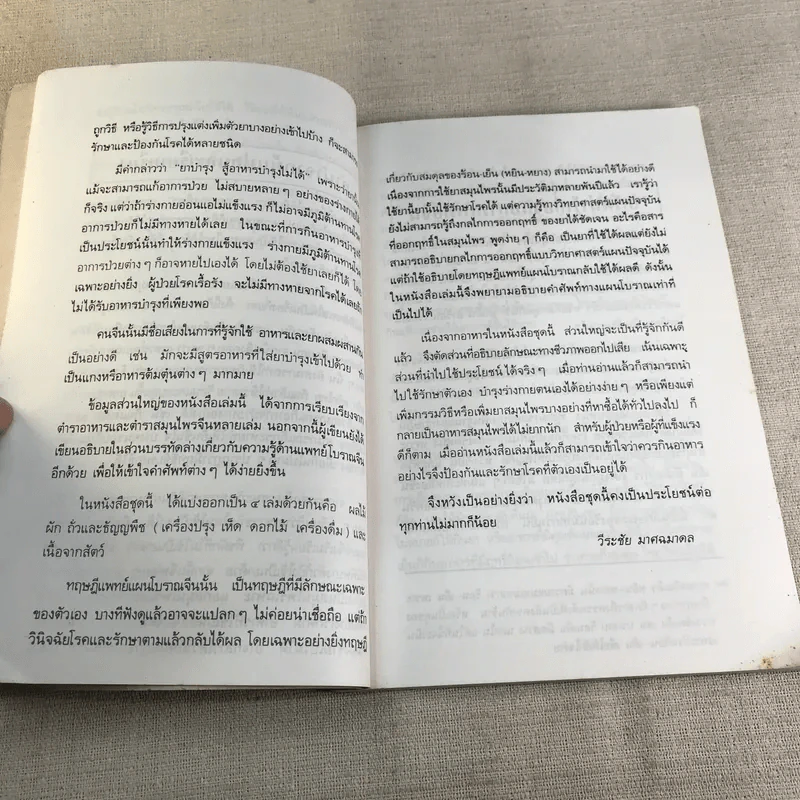 ถูกวิธี หรือรู้วิธีการปรุงแต่งเพิ่มตัวยาบางอย่างเข้าไปบ้าง ก็จะสามารถ
รักษาและป้องกันโรคได้หลายชนิด
มีคำกล่าวว่า “ยาบำรุง สู้อาหารบำรุงไม่ได้” เพราะว่ายานั้น
แม้จะสามารถแก้อาการป่วย ไม่สบายหลาย ๆ อย่างของร่างกายได้
ก็จริง แต่ว่าถ้าร่างกายอ่อนแอไม่แข็งแรง ก็ไม่อาจมีภูมิต้านทานโรค
อาการป่วยก็ไม่มีทางหายได้เลย ในขณะที่การกินอาหารบำรุงที่
เป็นประโยชน์นั้นทำให้ร่างกายแข็งแรง ร่างกายมีภูมิต้านทานโรค
อาการป่วยต่าง ๆ ก็อาจหายไปเองได้ โดยไม่ต้องใช้ยาเลยก็ได้ โดย
เฉพาะอย่างยิ่ง ผู้ป่วยโรคเรื้อรัง จะไม่มีทางหายจากโรคได้เลยถ้า
ไม่ได้รับอาหารบำรุงที่เพียงพอ
คนจีนนั้นมีชื่อเสียงในการที่รู้จักใช้ อาหารและยาผสมผสานกัน
เป็นอย่างดี เช่น มักจะมีสูตรอาหารที่ใส่ยาบำรุงเข้าไปด้วย ทำ
เป็นแกงหรืออาหารต้มตุ๋นต่าง ๆ มากมาย
ข้อมูลส่วนใหญ่ของหนังสือเล่มนี้ ได้จากการเรียบเรียงจาก
ตำราอาหารและตำราสมุนไพรจีนหลายเล่ม นอกจากนี้ผู้เขียนยังได้
เขียนอธิบายในส่วนบรรทัดล่างเกี่ยวกับความรู้ด้านแพทย์โบราณจีน
อีกด้วย เพื่อให้เข้าใจคำศัพท์ต่าง ๆ ได้ง่ายยิ่งขึ้น
ในหนังสือชุดนี้ ได้แบ่งออกเป็น ๔ เล่มด้วยกันคือ ผลไม้
ผัก ถั่วและธัญญพืช (เครื่องปรุง เห็ด ดอกไม้ เครื่องดื่ม) และ
เนื้อจากสัตว์
ทฤษฎีแพทย์แผนโบราณจีนนั้น เป็นทฤษฎีที่มีลักษณะเฉพาะ
ของตัวเอง บางทีฟังดูแล้วอาจจะแปลก ๆ ไม่ค่อยน่าเชื่อถือ แต่ถ้า
วินิจฉัยโรคและรักษาตามแล้วกลับได้ผล โดยเฉพาะอย่างยิ่งทฤษฎี
เกี่ยวกับสมดุลของร้อน-เย็น (หยิน-หยาง) สามารถนำมาใช้ได้อย่างดี
เนื่องจากการใช้ยาสมุนไพรนั้นมีประวัติมาหลายพันปีแล้ว เรารู้ว่า
ใช้ยานี้ยานั้นใช้รักษาโรคได้ แต่ความรู้ทางวิทยาศาสตร์แผนปัจจุบัน
ยังไม่สามารถรู้ถึงกลไกการออกฤทธิ์ ของยาได้ชัดเจน อะไรคือสาร
ที่ออกฤทธิ์ในสมุนไพร พูดง่าย ๆ ก็คือ เป็นยาที่ใช้ได้ผลแต่ยังไม่
สามารถอธิบายกลไกการออกฤทธิ์แบบวิทยาศาสตร์แผนปัจจุบันได้
แต่ถ้าใช้อธิบายโดยทฤษฎีแพทย์แผนโบราณกลับใช้ได้ผลดี ดังนั้น
ในหนังสือเล่มนี้จึงพยายามอธิบายคำศัพท์ทางแผนโบราณเท่าที่
เป็นไปได้
เนื่องจากอาหารในหนังสือชุดนี้ ส่วนใหญ่จะเป็นที่รู้จักกันดี
แล้ว จึงตัดส่วนที่อธิบายลักษณะทางชีวภาพออกไปเสีย เน้นเฉพาะ
ส่วนที่นำไปใช้ประโยชน์ ได้จริง ๆ เมื่อท่านอ่านแล้วก็สามารถนำ
ไปใช้รักษาตัวเอง บำรุงร่างกายตนเองได้อย่างง่าย ๆ หรือเพียงแต่
เพิ่มกรรมวิธีหรือเพิ่มยาสมุนไพรบางอย่างที่หาซื้อได้ทั่วไปลงไป ก็
กลายเป็นอาหารสมุนไพรได้ไม่ยากนัก สำหรับผู้ป่วยหรือผู้ที่แข็งแรง
ดีก็ตาม เมื่ออ่านหนังสือเล่มนี้แล้วก็สามารถเข้าใจว่าควรกินอาหาร
อย่างไรจึงป้องกันและรักษาโรคที่ตัวเองเป็นอยู่ได้
จึงหวังเป็นอย่างยิ่งว่า หนังสือชุดนี้คงเป็นประโยชน์ต่อ
ทุกท่านไม่มากก็น้อย
วีระชัย มาศฉมาดล